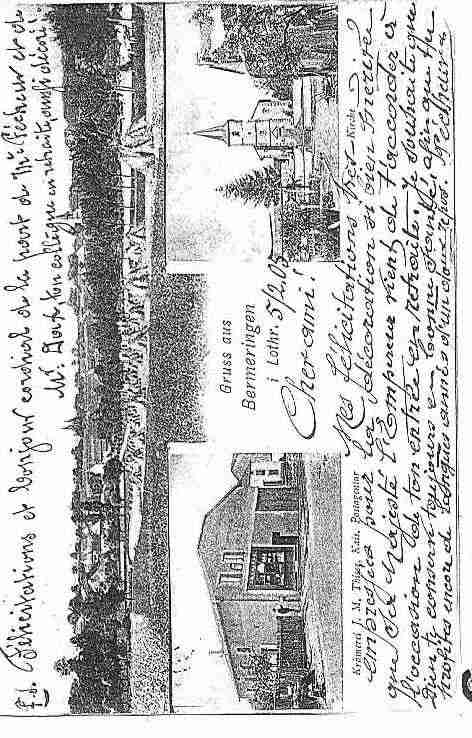 P.S. Félicitations et bonjour cordial de la part de Mr Pécheur et de
Mr
ton collègue en retraite, aussi décoré
Gruss aus
Bermeringen
i Lothr. 5/2.05
Kirche
Krämerei J. M. Thiesy, Kais. Postagentur
Cher ami!
Mes félicitations très-
empressées pour la décoration si bien méritée
que Sa Majesté l'Empereur vient de t'accorder à
l'occasion de ton entrée en retraite. Je souhaite que
Dieu te conserve toujours en bonne santé, afin que tu
profites encore de longues années d'un doux repos.